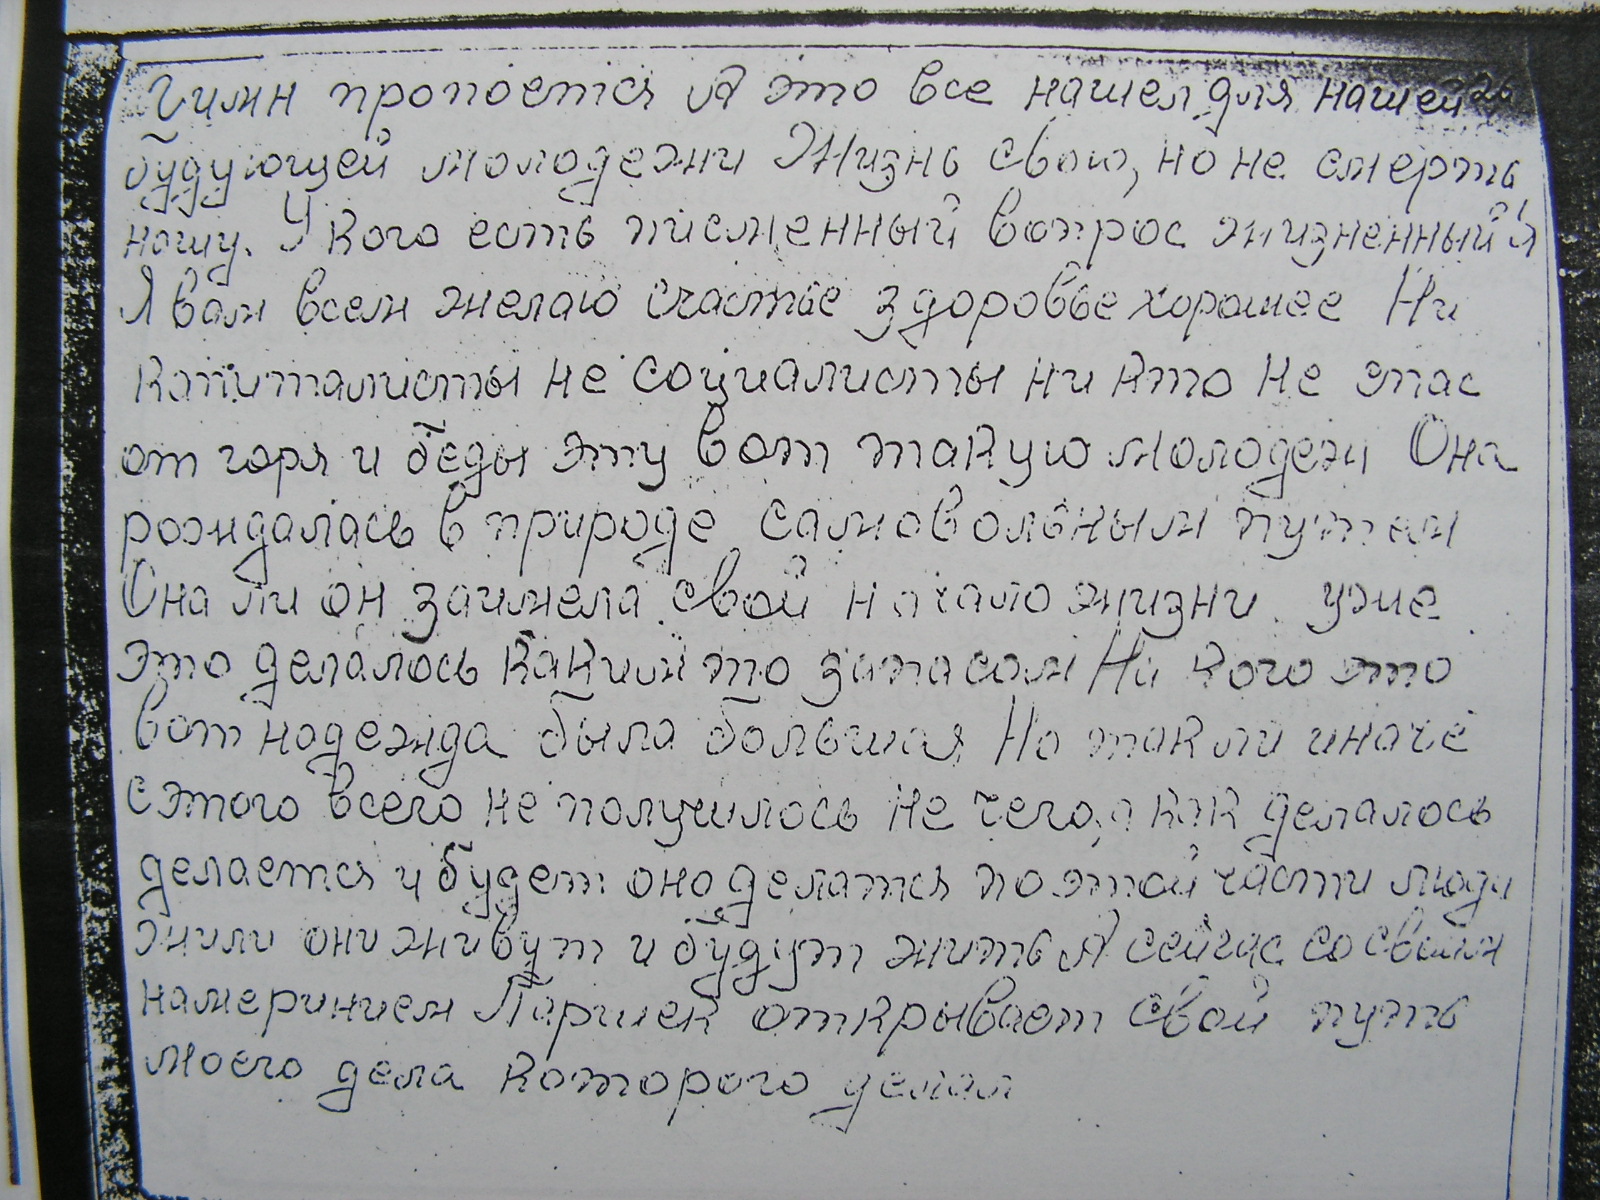 Гимн пропоется А это все нашел для нашей 26
будующей молодежи Жизнь свою, но не смерть
нашу. У кого есть писменный вопрос жизненный Я
Я вам всем желаю счастье здоровье хорошее Ни
капиталисты не социалисты ни кто не спас
от горя и беды эту вот такую молодежи Она
рождалась в природе самовольным путем
Она ли он заимела свой начало жизни уже
это делалось каким то запасом На кого это
вот надежда была большая, Но так ли иначе
с этого всего не получилось не чего, а как делалось
делается и будет оно делатся по этой части люди
жили они живут и будут жить А сейчас со своим
намеринием Паршек открывает свой путь
моего дела которого делал